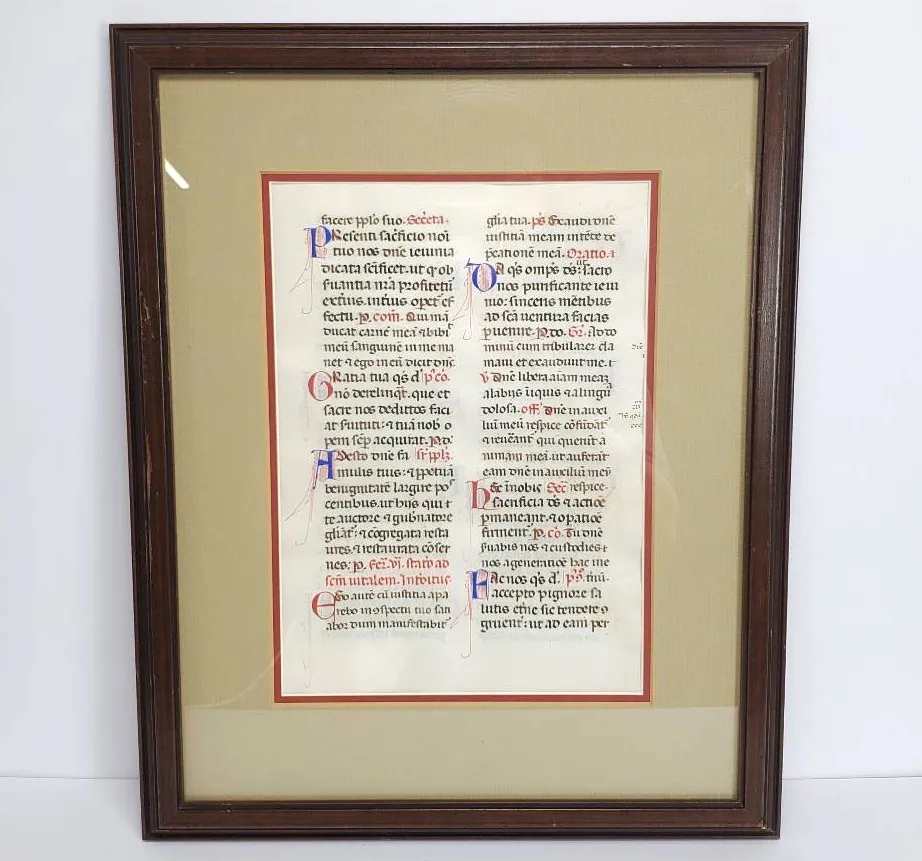 facere pplo suo. Secreta.
PResenti sacrficio noi
tuo nos dne ieiunia
dicata scificet. ut q ob
suantia nra profitetur
exterius. intius opet ef
fectu. p. com. Qui ma
ducat carne mea & bibit
meu sanguine in me ma
net & ego in eu dicit dns.
GRatia tua qs d p co.
no derelinqt. que et
sacre nos deditos faci
at suituti: & tua nob o
pem semp acquirat. p. d.
ADesto dne fa sr pplm.
mulis tuis: & ppetua
benignitate largire po
centibus. ut hijs qui t
te auctore & gubnatore
gliat: & cogregata resta
ures. & restaurata coser
ues: p. Fer. vi. statio ad
scm uitalem. Introitus
EGo aute cu iusticia apa
rebo in 9spectu tuo sati
abor dum manifestabit
glia tua. ps Exaudi dne
iusticia meam intede de
pcatione mea. Oratio.
DA qs omps ds: sacro
nos purificante ieiu
nio: sinceris metibus
ad sca uentura facias
puenire. p. do. Gr. Ad do
minu cum tribularer cla
maui et exaudiuit me.
v dne libera aiam mea
alabijs iiquis & a lingua
dolosa. off. Dne in auxi
liu meu respice cofudat
& reueant qui querut a
nimam mea. ut auferat
eam dne in auxiliu meu
hec inobis Sec respice.
sacrificia ds & actioe
pmaneant. & opatioe
firment. p. co. Tu dne
suabis nos & custodies
nos a generatioe hac ine
FAc nos qs d. ps. fmi.
accepto pignore sa
lutis etne sic tendere 9
gruent: ut ad eam per